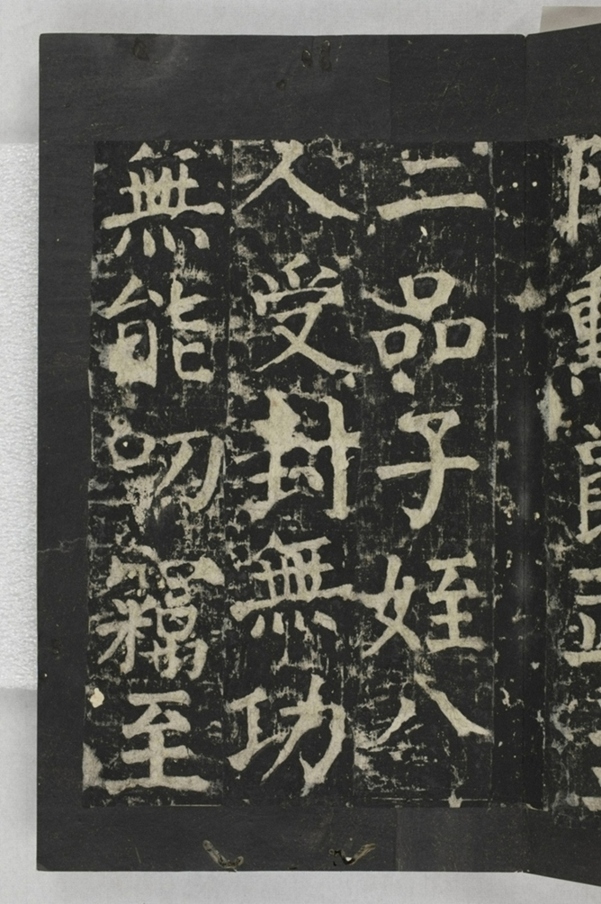 勳
三品子姪八
人受封無功
無能叨竊至